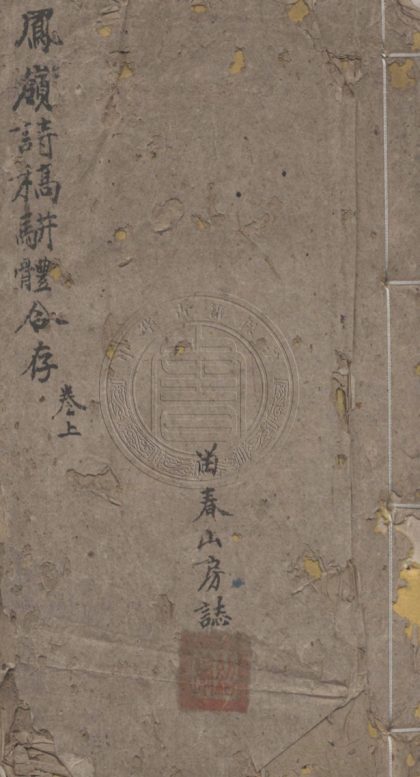 鳳嶺詩稿駢體合存
卷上
春山房誌